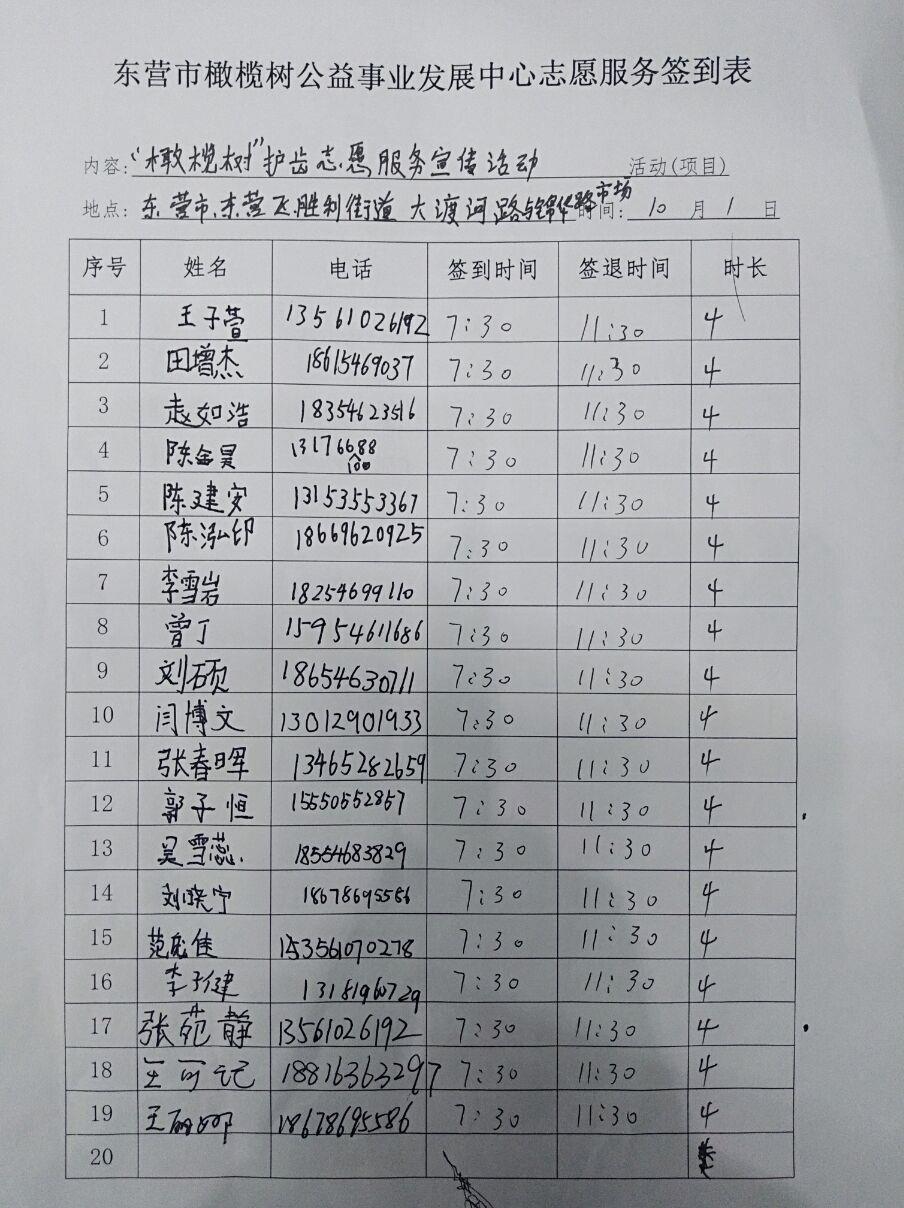 东营市橄榄树公益事业发展中心志愿服务签到表
内容:“橄榄树”护齿志愿服务宣传活动 活动(项目)
地点: 东营市东营区胜利街道 大渡河路与锦华路市场 时间: 10 月 1 日
序号 姓名 电话 签到时间 签退时间 时长
1 王子萱 13561026192 7:30 11:30 4
2 田增杰 18615469037 7:30 11:30 4
3 赵如浩 18354623516 7:30 11:30 4
4 陈金昊 13176688100 7:30 11:30 4
5 陈建安 13153553367 7:30 11:30 4
6 陈泓印 18669620925 7:30 11:30 4
7 李雪岩 18254699110 7:30 11:30 4
8 曾丁 15954611686 7:30 11:30 4
9 刘硕 18654630711 7:30 11:30 4
10 闫博文 13012901933 7:30 11:30 4
11 张春晖 13465282659 7:30 11:30 4
12 郭子恒 15550552857 7:30 11:30 4
13 吴雪蕊 18554683829 7:30 11:30 4
14 刘晓宁 18678695586 7:30 11:30 4
15 153561070278 7:30 11:30 4
16 李子健 13181960729 7:30 11:30 4
17 张苑静 13561026192 7:30 11:30 4
18 王可记 18816363297 7:30 11:30 4
19 18678695586 7:30 11:30 4
20